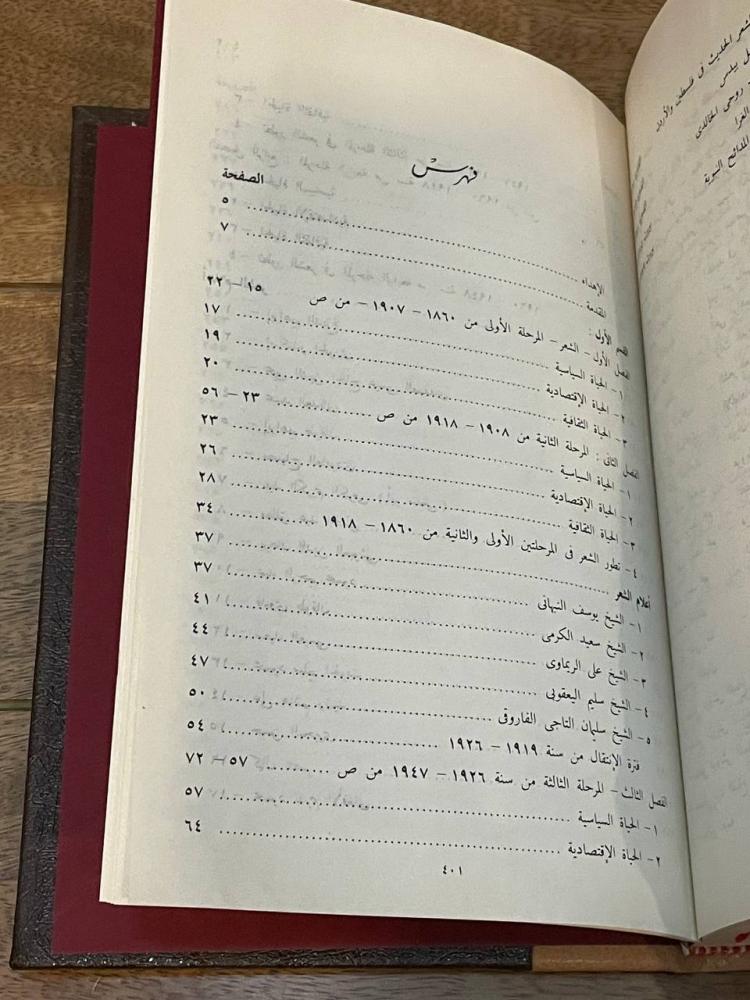 الشعر الحديث فى فلسطين والأردن
بيدس
روحى الخالدى
المدائح النبوية
فهرس
الصفحة
الإهداء ........ ٥
المقدمة ........ ٧
القسم الأول :
الفصل الأول – الشعر – المرحلة الأولى من ١٨٦٠ – ١٩٠٧ – من ص ١٥ – ٢٢
١ – الحياة السياسية ........ ١٧
٢ – الحياة الإقتصادية ........ ١٩
٣ – الحياة الثقافية ........ ٢٠
الفصل الثانى : المرحلة الثانية من ١٩٠٨ – ١٩١٨ من ص ........ ٢٣ – ٥٦
١ – الحياة السياسية ........ ٢٣
٢ – الحياة الإقتصادية ........ ٢٦
٣ – الحياة الثقافية ........ ٢٨
٤ – تطور الشعر فى المرحلتين الأولى والثانية من ١٨٦٠ – ١٩١٨ ٣٤
أعلام الشعر ........ ٣٧
١ – الشيخ يوسف النبهانى ........ ٣٧
٢ – الشيخ سعيد الكرمى ........ ٤١
٣ – الشيخ على الريماوى ........ ٤٤
٤ – الشيخ سليم اليعقوبى ........ ٤٧
٥ – الشيخ سليمان التاجى الفاروقى ........ ٥٠
فترة الإنتقال من سنة ١٩١٩ – ١٩٢٦ ........ ٥٤
الفصل الثالث – المرحلة الثالثة من سنة ١٩٢٦ – ١٩٤٧ من ص ........ ٥٧ – ٧٢
١ – الحياة السياسية ........ ٥٧
٢ – الحياة الإقتصادية ........ ٦٤
٤٠١